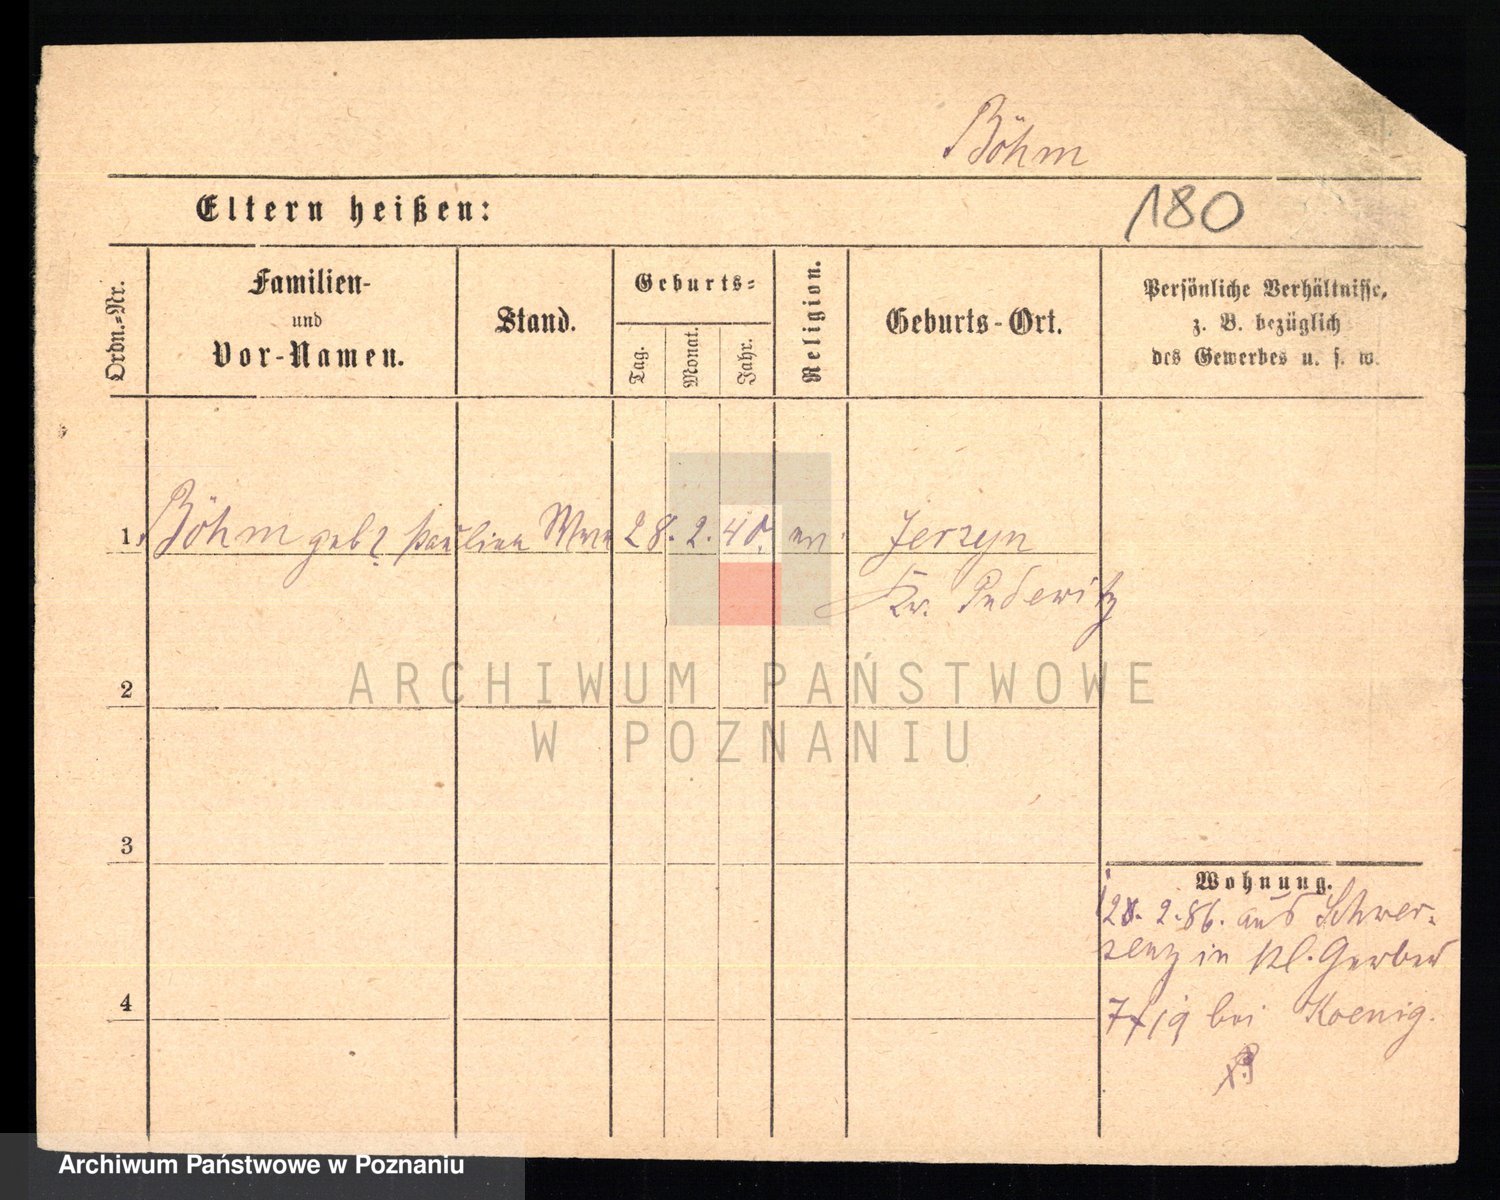 Böhm
180
Eltern heißen:
Ordn.-Nr.
Familien-
und
Vor-Namen.
Stand.
Geburts-
Tag.
Monat.
Jahr.
Religion.
Geburts-Ort.
Persönliche Verhältnisse,
z. B. bezüglich
des Gewerbes u. s. w.
1. Böhm geb? Pauline 28. 2. 40. ev. Jerzyn
Kr. Pudewitz
ARCHIWUM PAŃSTWOWE
W POZNANIU
2
3
4
Wohnung.
28. 2. 86. aus Schwer-
senz in Kl. Gerber
bei Koenig.
Archiwum Państwowe w Poznaniu